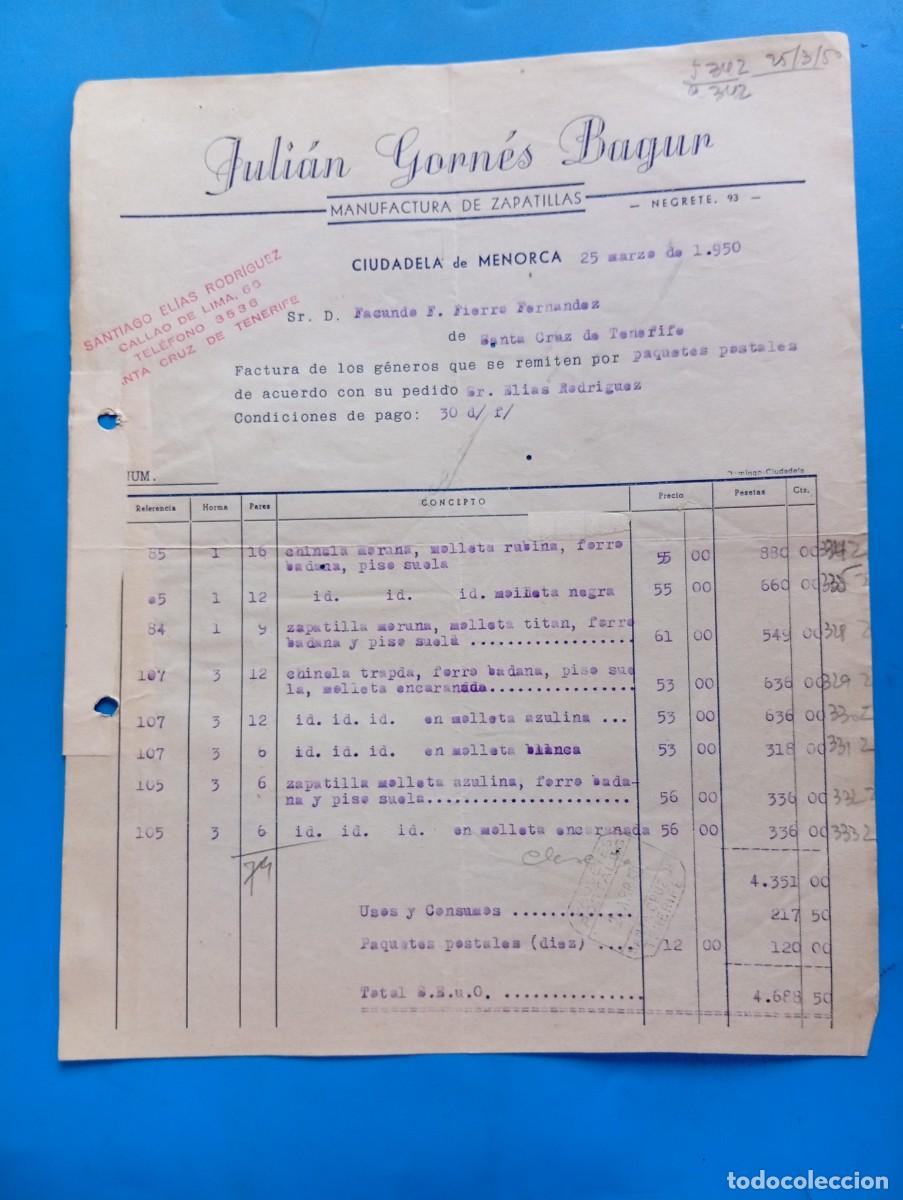 5 342 25/3/50
342
Julián Gornés Bagur
MANUFACTURA DE ZAPATILLAS
— NEGRETE, 93 —
CIUDADELA de MENORCA 25 marzo de 1.950
SANTIAGO ELÍAS RODRÍGUEZ
CALLAO DE LIMA, 65
TELÉFONO 3536
ANTA CRUZ DE TENERIFE
Sr. D. Facundo F. Fierro Fernandez
de Santa Cruz de Tenerife
Factura de los géneros que se remiten por paquetes postales
de acuerdo con su pedido Sr. Elias Rodriguez
Condiciones de pago: 30 d/ f/
UM.
Domingo-Ciudadela
Referencia Horma Pares CONCEPTO Precio Pesetas Cts.
85 1 16 chinela moruna, molleta rubina, forro 55 00 880 00 334 2
badana, piso suela
85 1 12 id. id. id. molleta negra 55 00 660 00 335 2
84 1 9 zapatilla moruna, molleta titan, forro
badana y piso suela .................. 61 00 549 00 328 2
107 3 12 chinela trapda, forro badana, piso sue
la, molleta encaranada................. 53 00 636 00 329 2
107 3 12 id. id. id. en molleta azulina ... 53 00 636 00 330 2
107 3 6 id. id. id. en molleta blanca 53 00 318 00 331 2
105 3 6 zapatilla molleta azulina, forro bada-
na y piso suela...................... 56 00 336 00 332 2
105 3 6 id. id. id. en molleta encaranada 56 00 336 00 333 2
79
4.351 00
Usos y Consumos ............. 217 50
Paquetes postales (diez) .... /12 00 120 00
Total S.E.u.O. ............... 4.688 50
todocoleccion